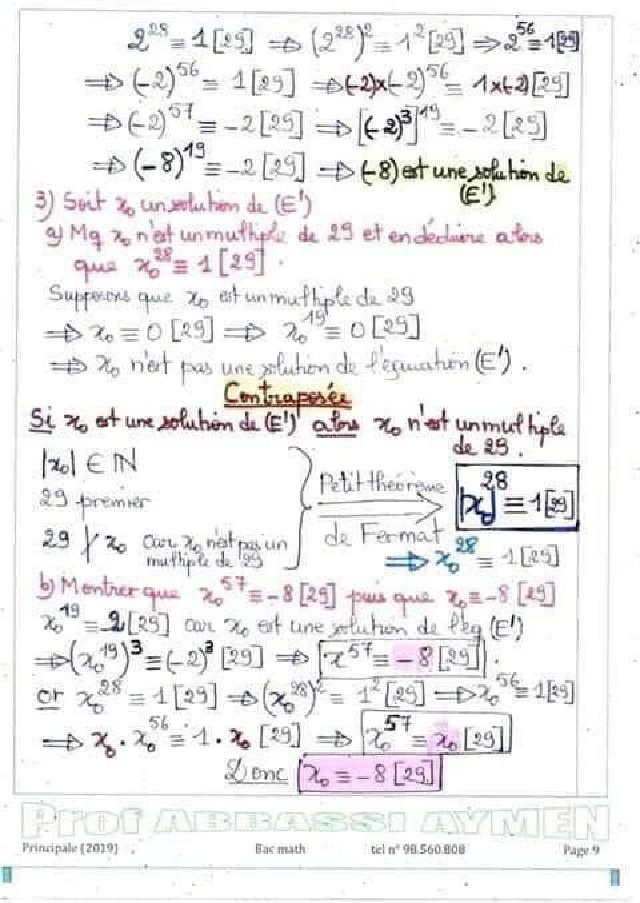 2^28 ≡ 1 [29] ⇒ (2^28)^2 ≡ 1^2 [29] ⇒ 2^56 ≡ 1 [29]
⇒ (-2)^56 ≡ 1 [29] ⇒ (-2)×(-2)^56 ≡ 1×(-2) [29]
⇒ (-2)^57 ≡ -2 [29] ⇒ [(-2)^3]^19 ≡ -2 [29]
⇒ (-8)^19 ≡ -2 [29] ⇒ (-8) est une solution de (E')
3) Soit x₀ un solution de (E')
a) Mq x₀ n'est un multiple de 29 et en déduire alors
que x₀^28 ≡ 1 [29].
Supposons que x₀ est un multiple de 29
⇒ x₀ ≡ 0 [29] ⇒ x₀^19 ≡ 0 [29]
⇒ x₀ n'est pas une solution de l'équation (E').
Contraposée
Si x₀ est une solution de (E') alors x₀ n'est un multiple
de 29.
|x₀| ∈ IN
29 premier
29 ∤ x₀ car x₀ n'est pas un
multiple de 29
Petit théorème
de Fermat
|x₀|^28 ≡ 1 [29]
⇒ x₀^28 ≡ 1 [29]
b) Montrer que x₀^57 ≡ -8 [29] puis que x₀ ≡ -8 [29]
x₀^19 ≡ -2 [29] car x₀ est une solution de l'éq (E')
⇒ (x₀^19)^3 ≡ (-2)^3 [29] ⇒ x^57 ≡ -8 [29].
or x₀^28 ≡ 1 [29] ⇒ (x₀^28)^2 ≡ 1^2 [29] ⇒ x₀^56 ≡ 1 [29]
⇒ x₀ . x₀^56 ≡ 1 . x₀ [29] ⇒ x₀^57 ≡ x₀ [29]
Donc x₀ ≡ -8 [29]
Prof ABBASSI AYMEN
Principale (2019) Bac math tel n° 98.560.808 Page 9